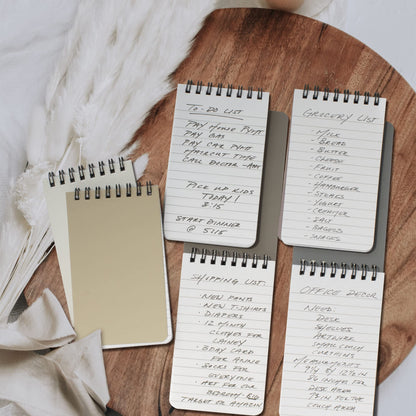 TO-DO LIST
PAY HOME PYMT
PAY GAS
PAY CAR PYMT
HAIRCUT TIME
CALL DOCTOR -
PICK UP KIDS
TODAY!
3:15
START DINNER
@ 5:15
GROCERY LIST:
- MILK
- BREAD
- BUTTER
- CHEESE
- FRUIT
- COFFEE
- HAMBURGER
- STEAKS
- YOGURT
- SALT
- BAGELS
- SNACKS
SHOPPING LIST:
- NEW PANTS
- NEW T-SHIRTS
- DIAPERS
- 12 MONTH
CLOTHES FOR
LAINEY
- BDAY CARD
FOR ANNIE
- SOCKS FOR
EVERYONE
- ART FOR OUR
BEDROOM
TARGET OR AMAZON
OFFICE DECOR
NEED:
DESK
SHELVES
ARTWORK
CURTAINS
MEASUREMENTS